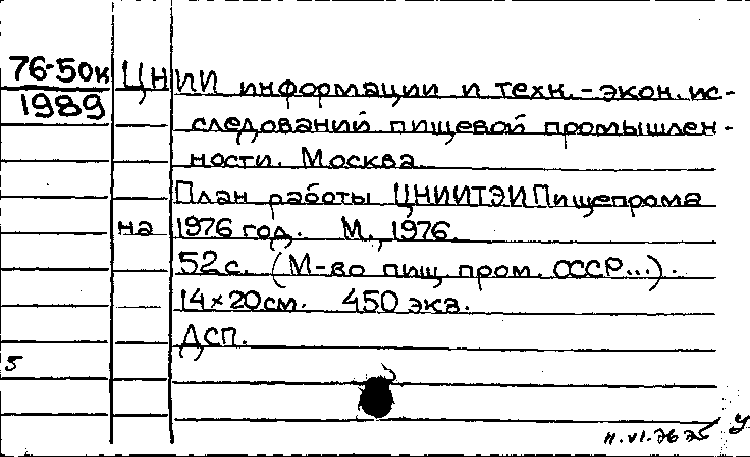 76-50к ЦНИИ информации и техн.-экон. ис-
1989 следований пищевой промышлен-
ности. Москва.
План работы ЦНИИТЭИПищепрома
на 1976 год. М., 1976.
52с. (М-во пищ. пром. СССР...).
14×20см. 450 экз.
ДСП.
5
у